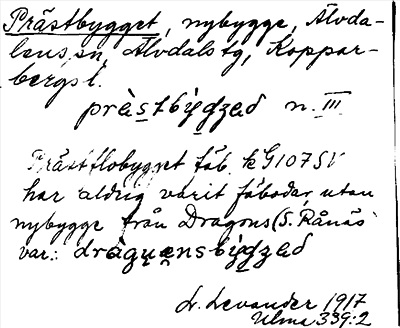 Prästbygget, nybygge, Älvda-
lens sn, Älvdals tg, Koppar-
bergs l.
pràstby̆gzeд n. III.
Prästflobygget fäb. k G107SV
har aldrig varit fäbodar, utan
nybygge från Dragons (S. Rånäs
var:
L. Levander 1917
Ulma 339:2